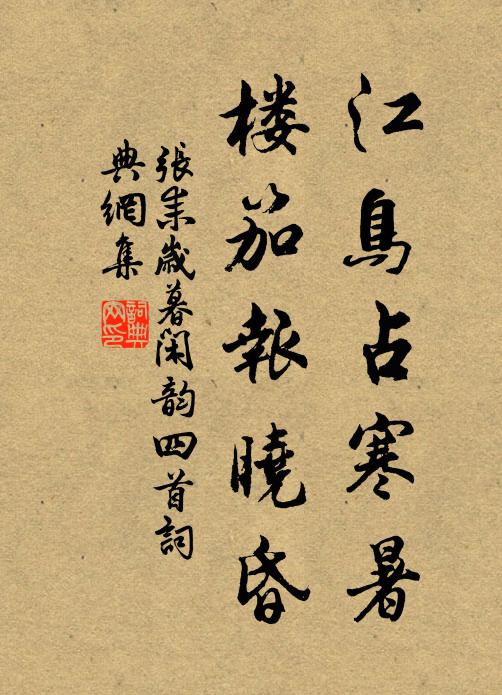 江鳥占寒暑
楼笳報曉昏
張耒歲暮閑韵四首詞
典網集
詞典
网印